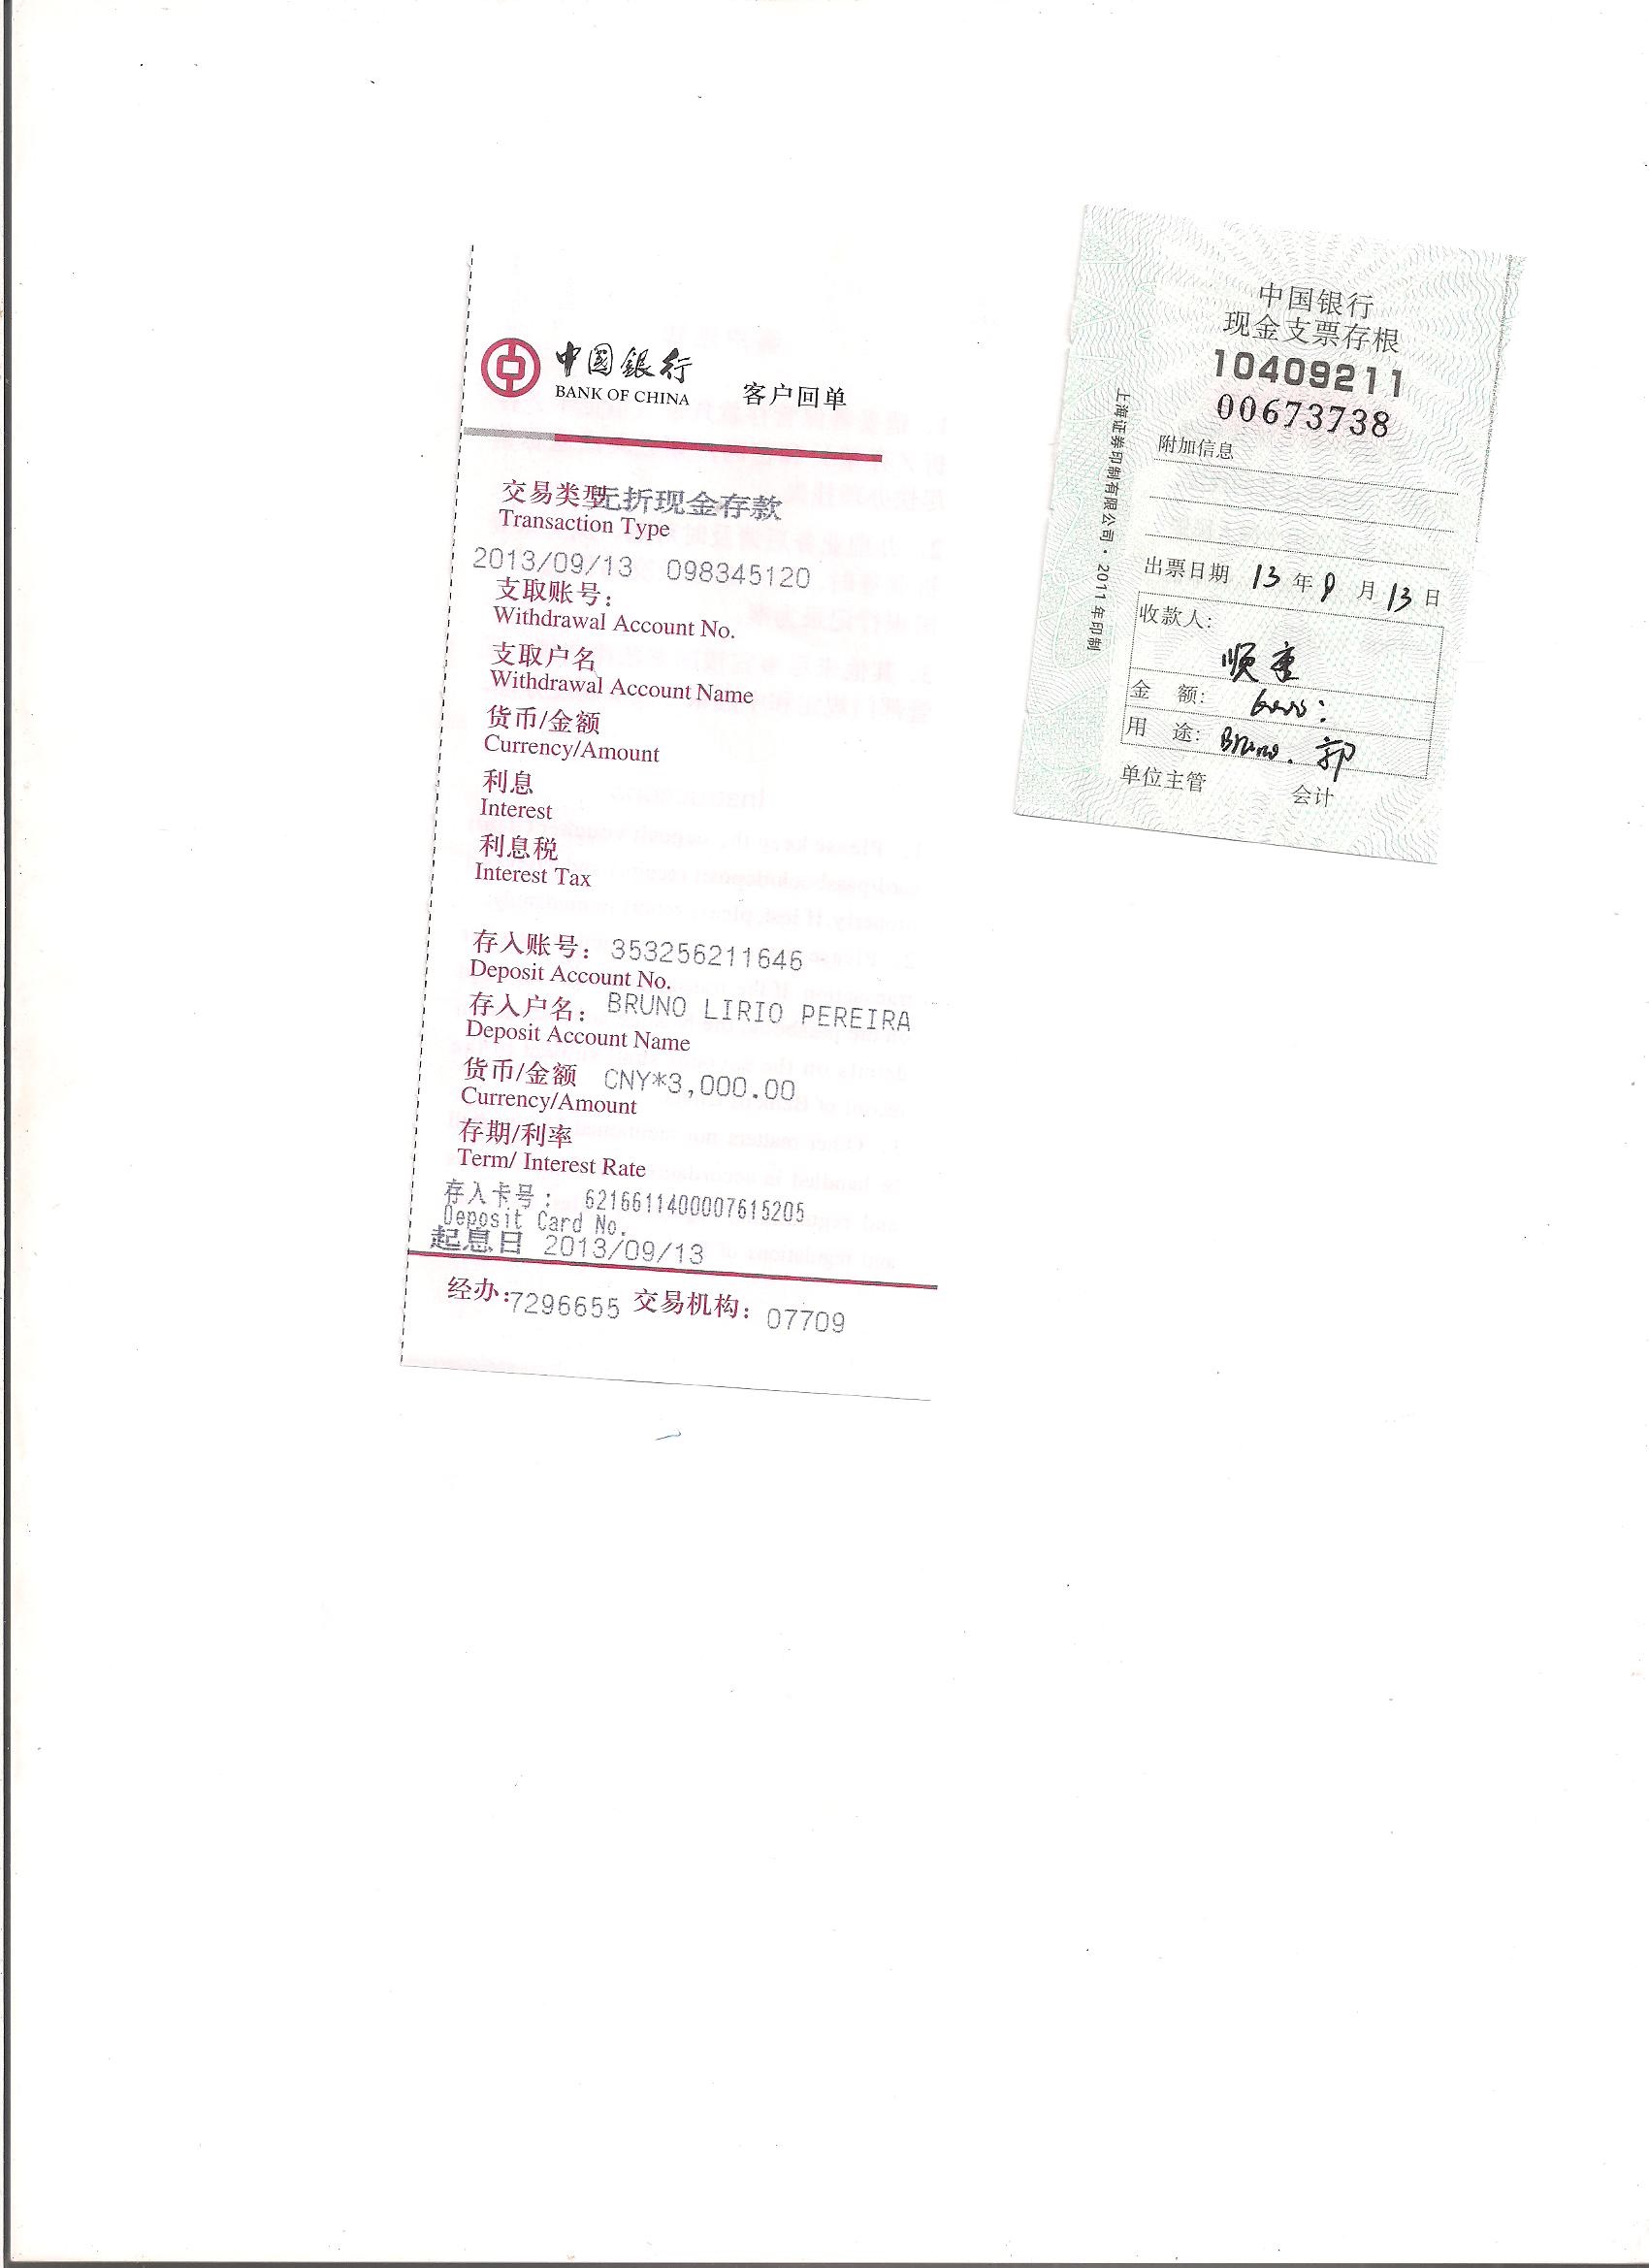 中国銀行
BANK OF CHINA
客户回单
交易类型 无折现金存款
Transaction Type
2013/09/13 098345120
支取账号:
Withdrawal Account No.
支取户名
Withdrawal Account Name
货币/金额
Currency/Amount
利息
Interest
利息税
Interest Tax
存入账号: 353256211646
Deposit Account No.
存入户名: BRUNO LIRIO PEREIRA
Deposit Account Name
货币/金额 CNY*3,000.00
Currency/Amount
存期/利率
Term/ Interest Rate
存入卡号: 6216611400007615205
Deposit Card No.
起息日 2013/09/13
经办:7296655 交易机构: 07709
中国银行
现金支票存根
10409211
00673738
附加信息
出票日期 13 年 9 月 13 日
收款人:
金 额:
用 途: Bruno. 郭
单位主管 会计
上海证券印制有限公司·2011年印制